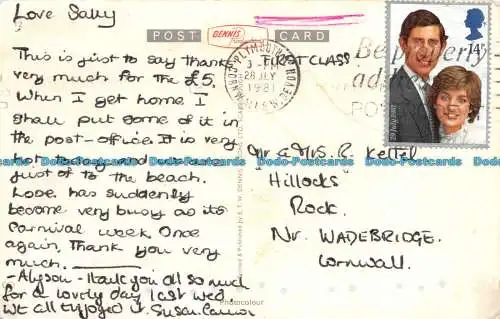 Love Sally
POST DENNIS CARD
This is just to say thank
very much for the £5.
When I get home I
shall put some of it in
the post-office. It is very
hot today and we are
just off to the beach.
Looe has suddenly
become very busy as its
Carnival week. Once
again, Thank you very
much.
- Alyson - thank you all so much
for a lovely day last Wed.
We all enjoyed it. Susan
FIRST CLASS
PLYMOUTH
CORNWALL
28 JLY
1981
Be properly
POS
14P
Mr & Mrs. R.
Hillocks
Rock.
Nr. WADEBRIDGE.
Cornwall.
Photocolour
Dodo-Postcards Dodo-Postcards Dodo-Postcards Dodo-Postcards Dodo-Postcards